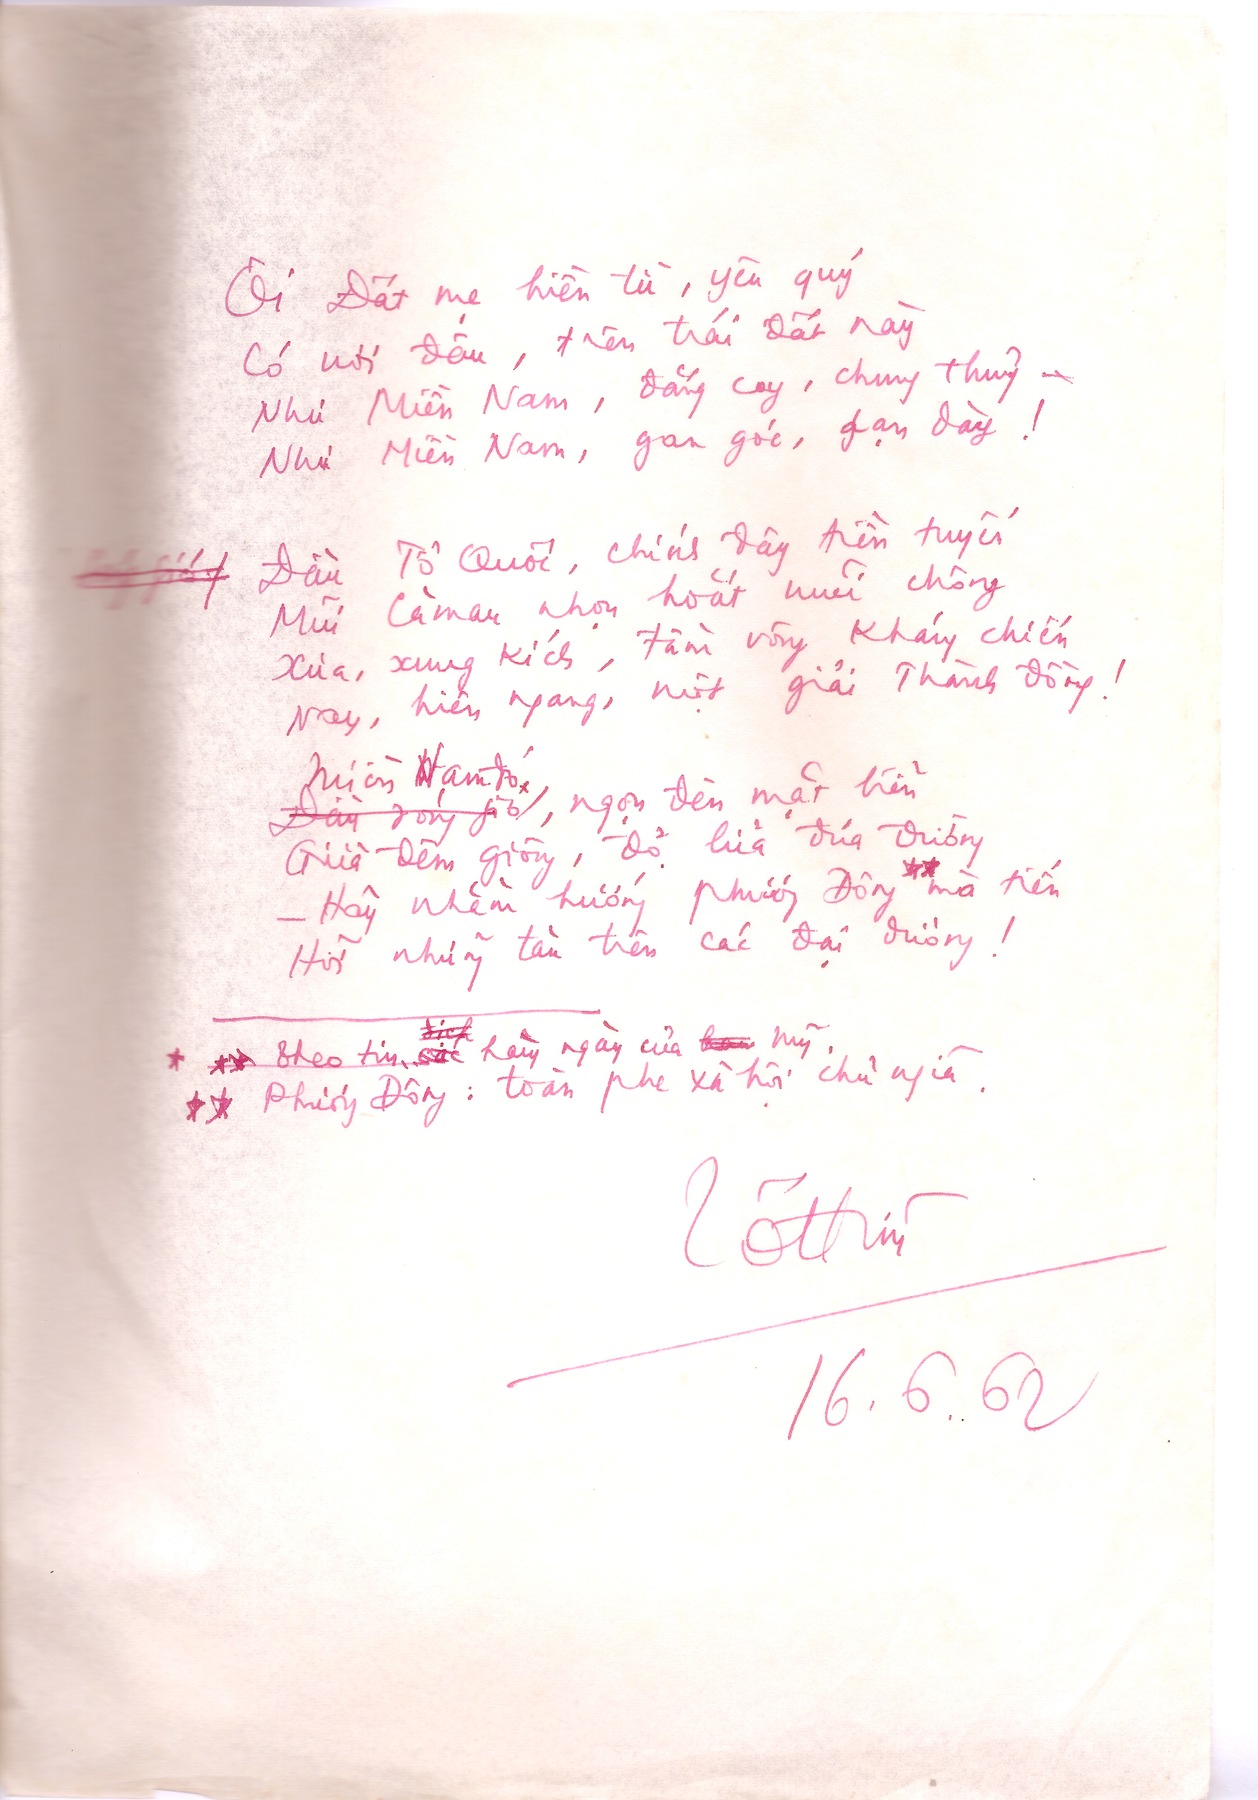 Ôi Đất mẹ hiền từ, yêu quý
Có nơi đâu, trên trái đất này
Như Miền Nam, đắng cay, chung thuỷ
Như Miền Nam, gan góc, dạn dày!
Đầu Tổ Quốc, chính đây tiền tuyến
Mũi Càmau nhọn hoắt mũi chông
Xưa, xung kích, tầm vông kháng chiến
Nay, hiên ngang, một giải Thành đồng!
Miền Nam đó
Đầu sóng gió, ngọn đèn mặt biển
Giữa đêm giông, đỏ lửa đưa đường
_ Hãy nhằm hướng phương Đông ** mà tiến
Hỡi những tàu trên các đại dương!
đích
* ** theo tin các hàng ngày của Mỹ.
** Phương Đông: toàn phe xã hội chủ nghĩa.
Tố Hữu
16.6.62